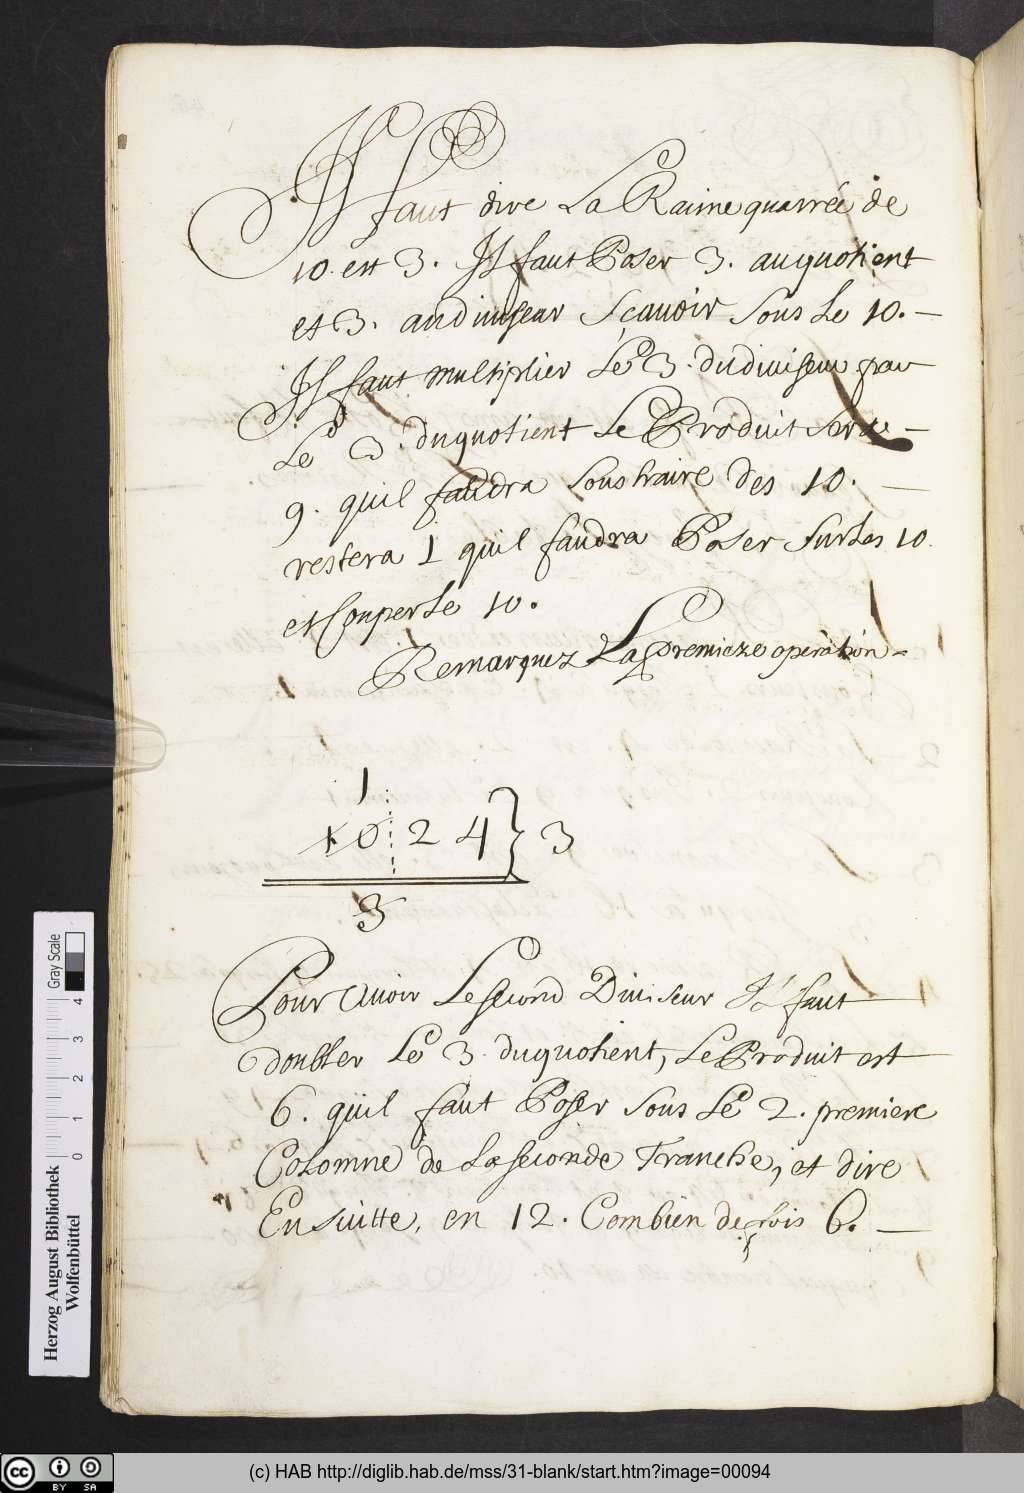 Il faut dire La Racine quarrée de
10. est 3. Il faut Poser 3. au quotient
et 3. au diuiseur Scauoir Sous Le 10. —
Il faut multiplier Le 3. du diuiseur par
Le 3. du quotient Le Produit sera —
9. quil faudra Soustraire des 10. —
restera 1 quil faudra Poser Sur Les 10.
et Couper Le 10.
Remarquez La premiere operation —
1
10 2 4 } 3
3
Pour Auoir Le second Diuiseur Il faut
doubler Le 3. du quotient, Le Produit est
6. quil faut Poser Sous Le 2. premiere
Colomne de La seconde Tranche, et dire
En suitte, en 12. Combien de fois 6. —
Herzog August Bibliothek
Wolfenbüttel
0 1 2 3 4
Gray Scale
cc BY SA
(c) HAB http://diglib.hab.de/mss/31-blank/start.htm?image=00094